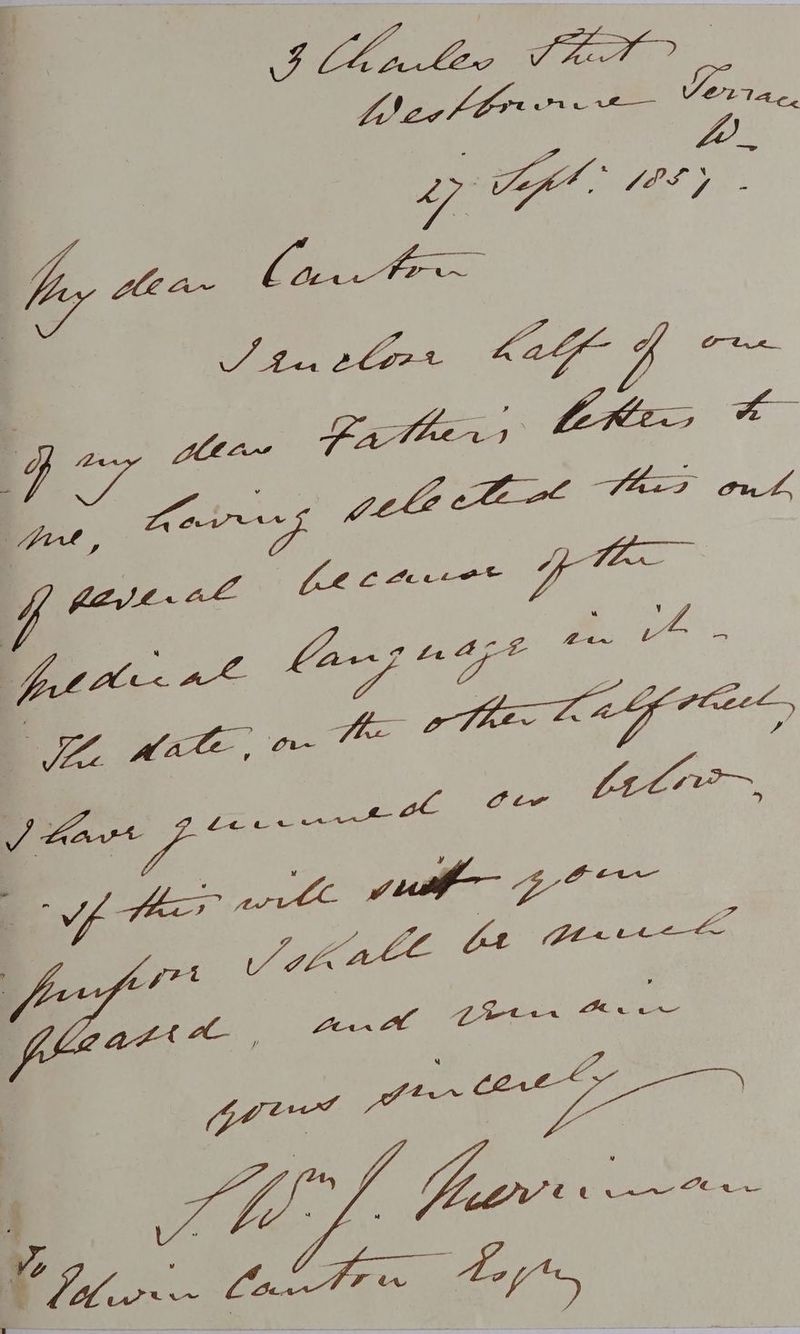 3 Charles Street
Westbourne Terrace
W_
27 Sept: 1857 -
My dear Canton
I enclose half of one
of my dear Father's letters to
me, having selected this out
of several because of the
medical language in it -
The date, on the other half sheet,
I have gummed on below.
If this will suit your
purpose I shall be much
pleased, and remain
yours sincerely
S. Wm. J. Merriman
To
Edwin Canton Esqre